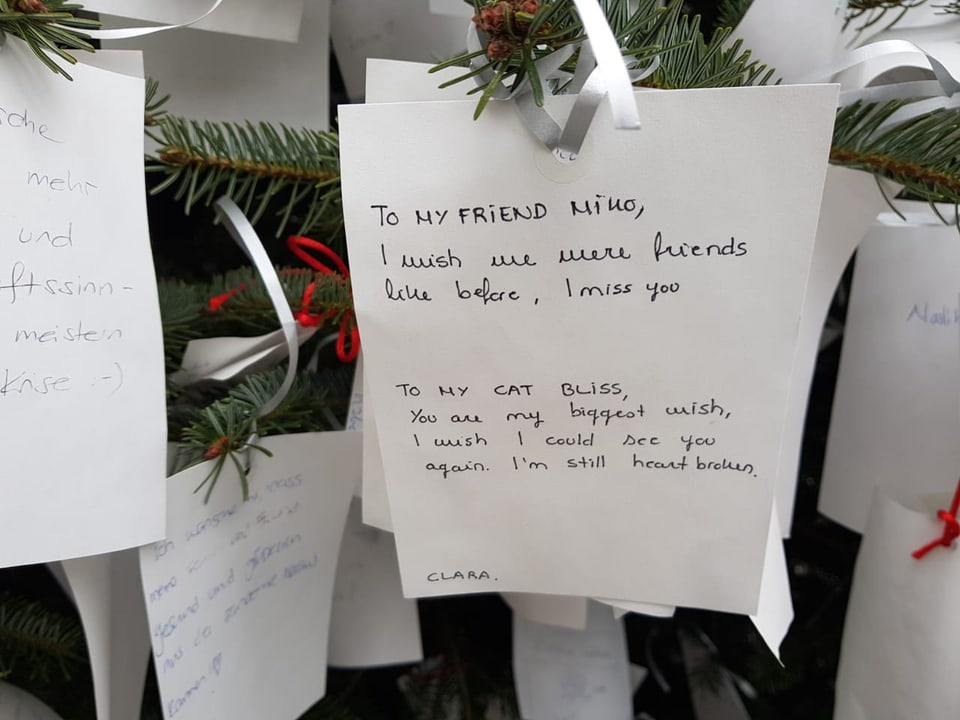 sche
mehr
und
ftssinn-
meistern
Krise :-)
TO MY FRIEND MIKO,
I wish we were friends
like before, I miss you
TO MY CAT BLISS,
You are my biggest wish,
I wish I could see you
again. I'm still heart broken.
CLARA.
Ich wünsche mir, dass
meine und
gesund und